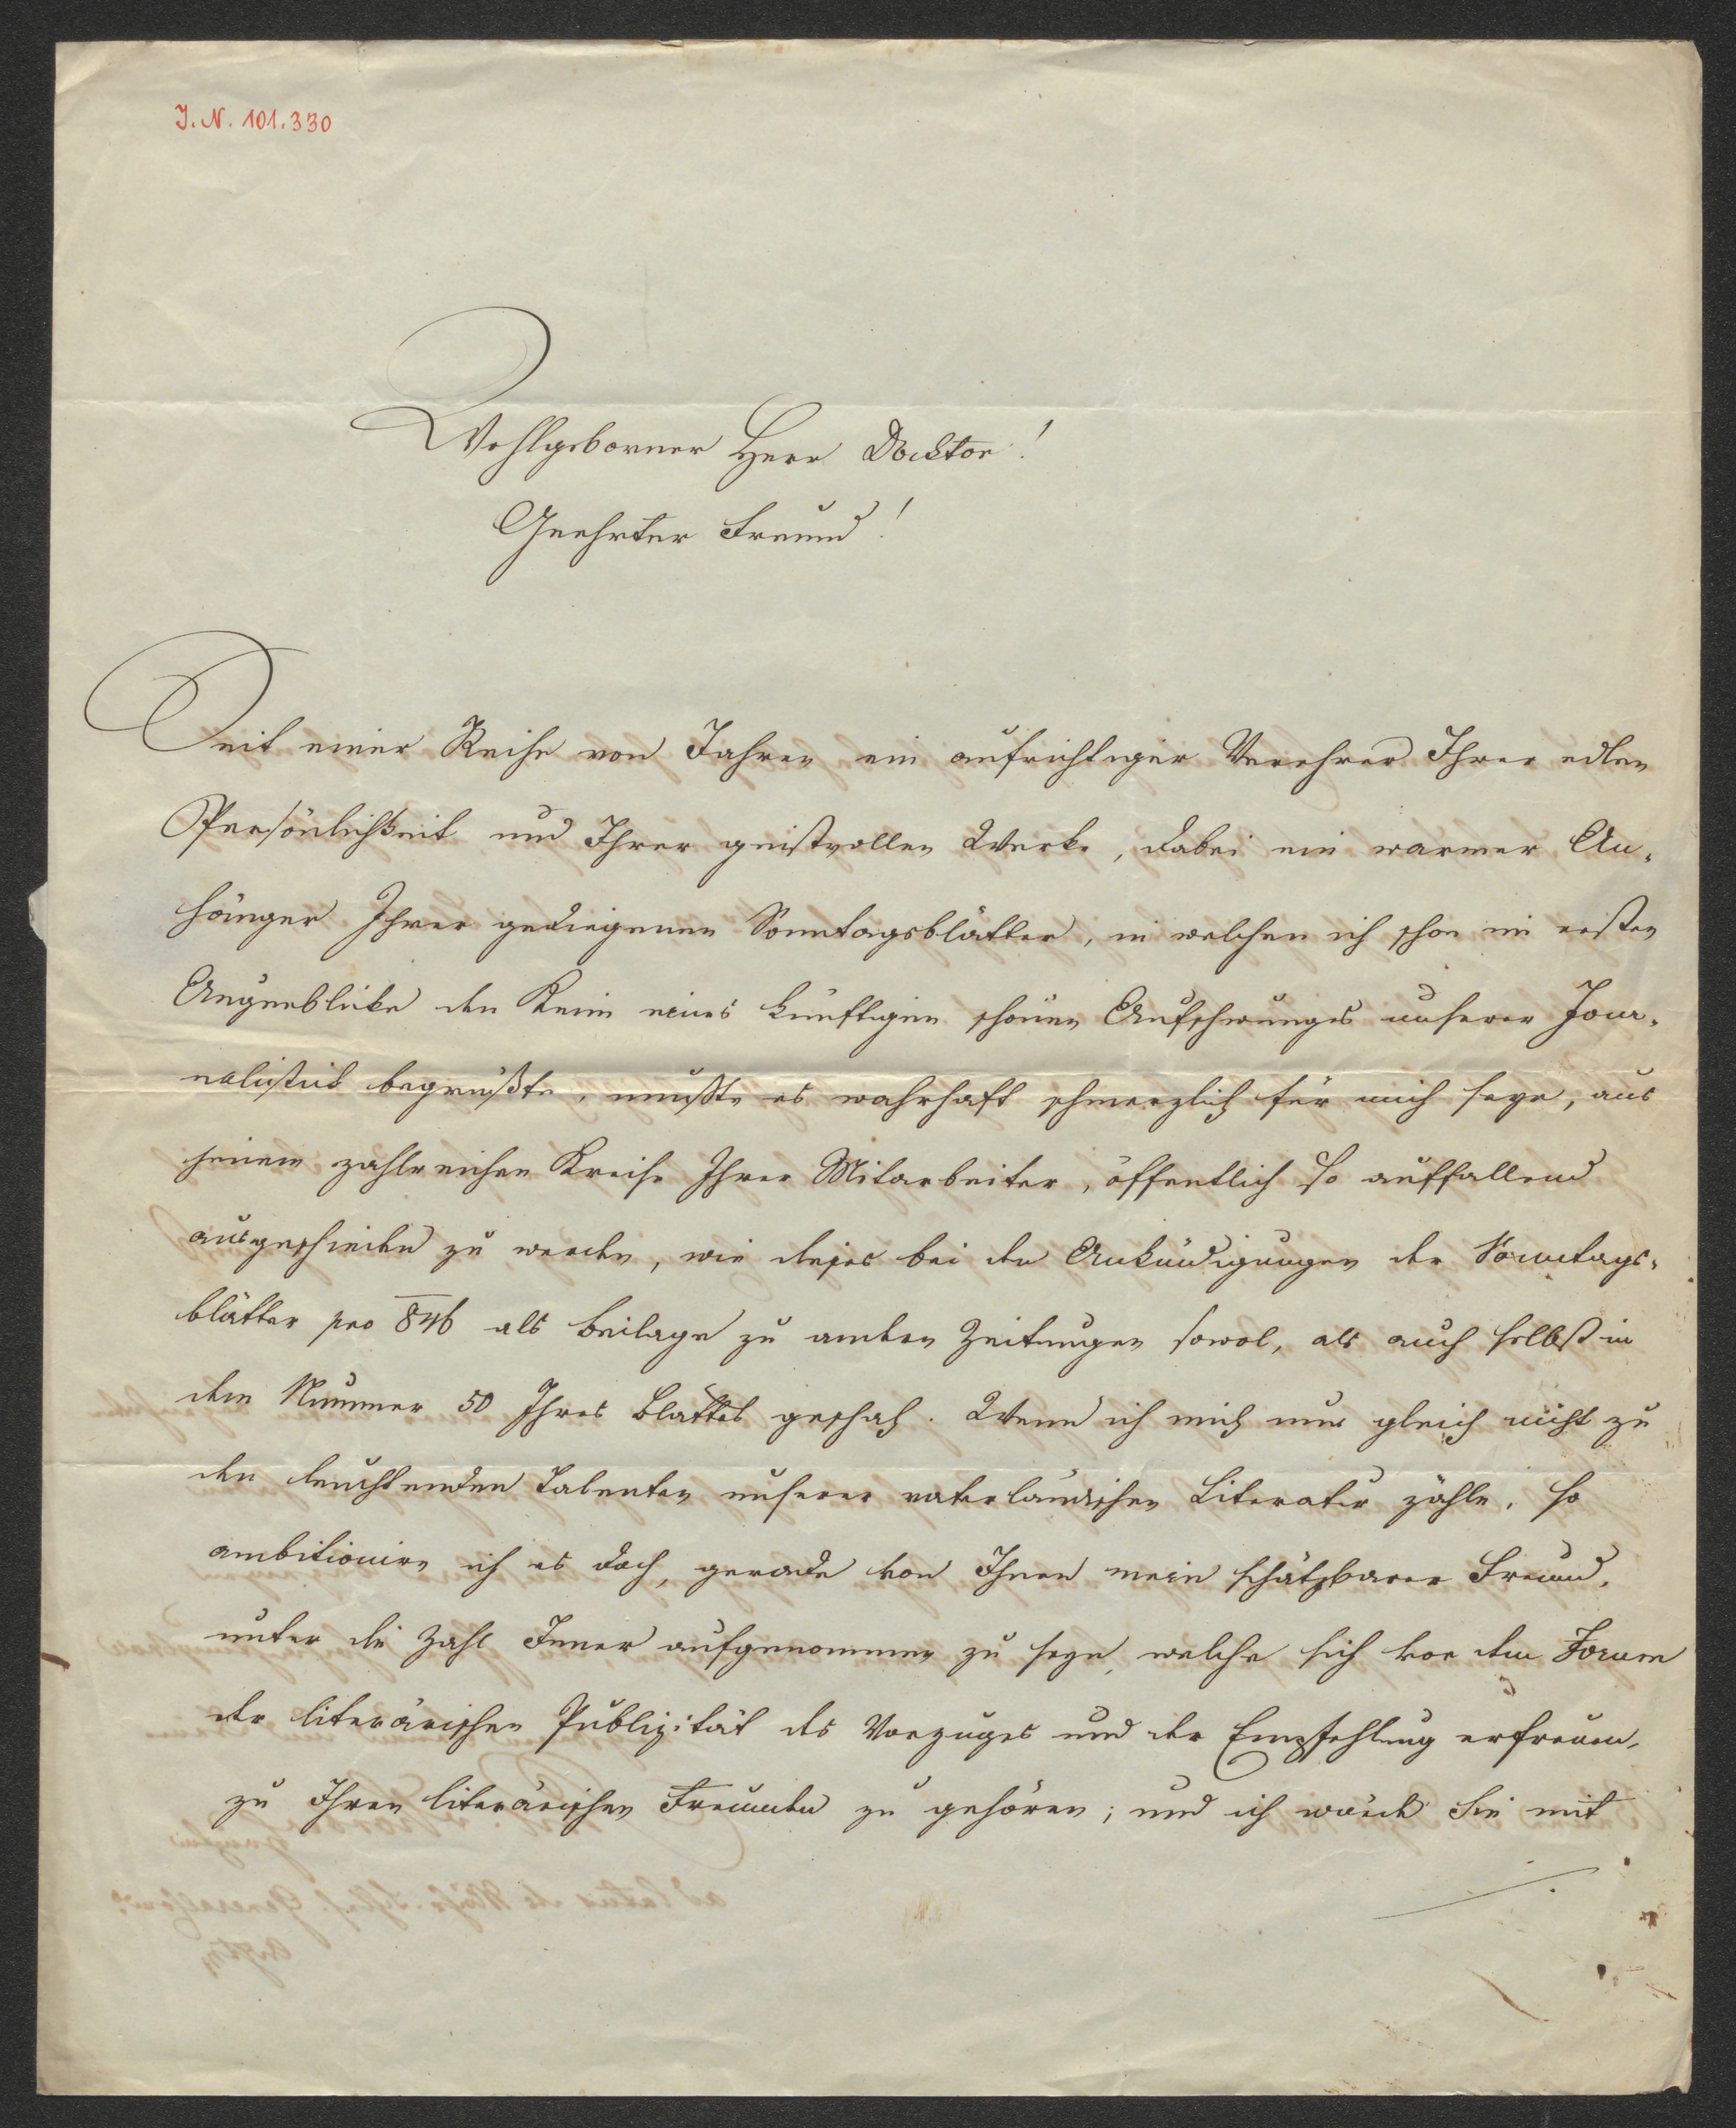 I. N. 101.330
Wohlgeborner Herr Docktor!
Geehrter Freund!
Seit einer Reihe von Jahren ein aufrichtiger Verehrer Ihrer edlen
Persönlichkeit und Ihrer geistvollen Werke, dabei ein warmer An-
hänger Ihrer gediegenen Sonntagsblätter, in welchen ich schon im ersten
Augenblicke den Keim eines künftigen schönen Aufschwunges unserer Jour-
nalistik begrüßte, mußte es wahrhaft schmerzlich für mich seyn, aus
jenem zahlreichen Kreise Ihrer Mitarbeiter, öffentlich so auffallend
ausgeschieden zu werden, wie dieses bei den Ankündigungen der Sonntags-
blätter pro 846 als Beilage zu andern Zeitungen sowol, als auch selbst in
dem Nummer 50 Ihres Blattes geschah. Wenn ich mich nun gleich nicht zu
den leuchtenden Talenten unserer vaterländischen Literatur zähle, so
ambitionire ich es doch, gerade von Ihnen mein schätzbarer Freund,
unter die Zahl Jener aufgenommen zu seyn, welche sich vor dem Forum
der literärischen Publizität des Vorzuges und der Empfehlung erfreuen,
zu Ihren literärischen Freunden zu gehören; und ich würde Sie mit